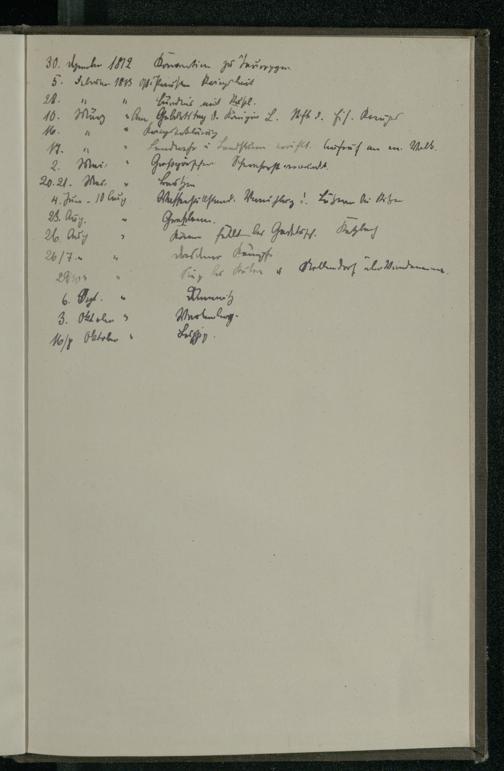 30. Dezember 1812 Konvention zu Tauroggen
5. Februar 1813 ostpreußischer Landtag
28. " " Bündnis mit Rußl.
10. März " Am Geburtstag d. Königin L. Stift. d. Eis. Kreuzes
16. " " Kriegserklärung
17. " " Landwehr u. Landsturm errichtet. Aufruf an m. Volk.
2. Mai. " Großgörschen Scharnhorst verwundet.
20.21. Mai. " Bautzen
4. Juni - 10 Aug Waffenstillstand. Lützow bei Kitzen
23. Aug. " Großbeeren.
26. Aug " Körner fällt bei Gadebusch. Katzbach
26/7. " " Dresdner Kämpfe
29/30 " bei Kulm u Nollendorf
6. Sept. " Dennewitz
3. Oktober " Wartenburg.
16/9 Oktober " Leipzig.